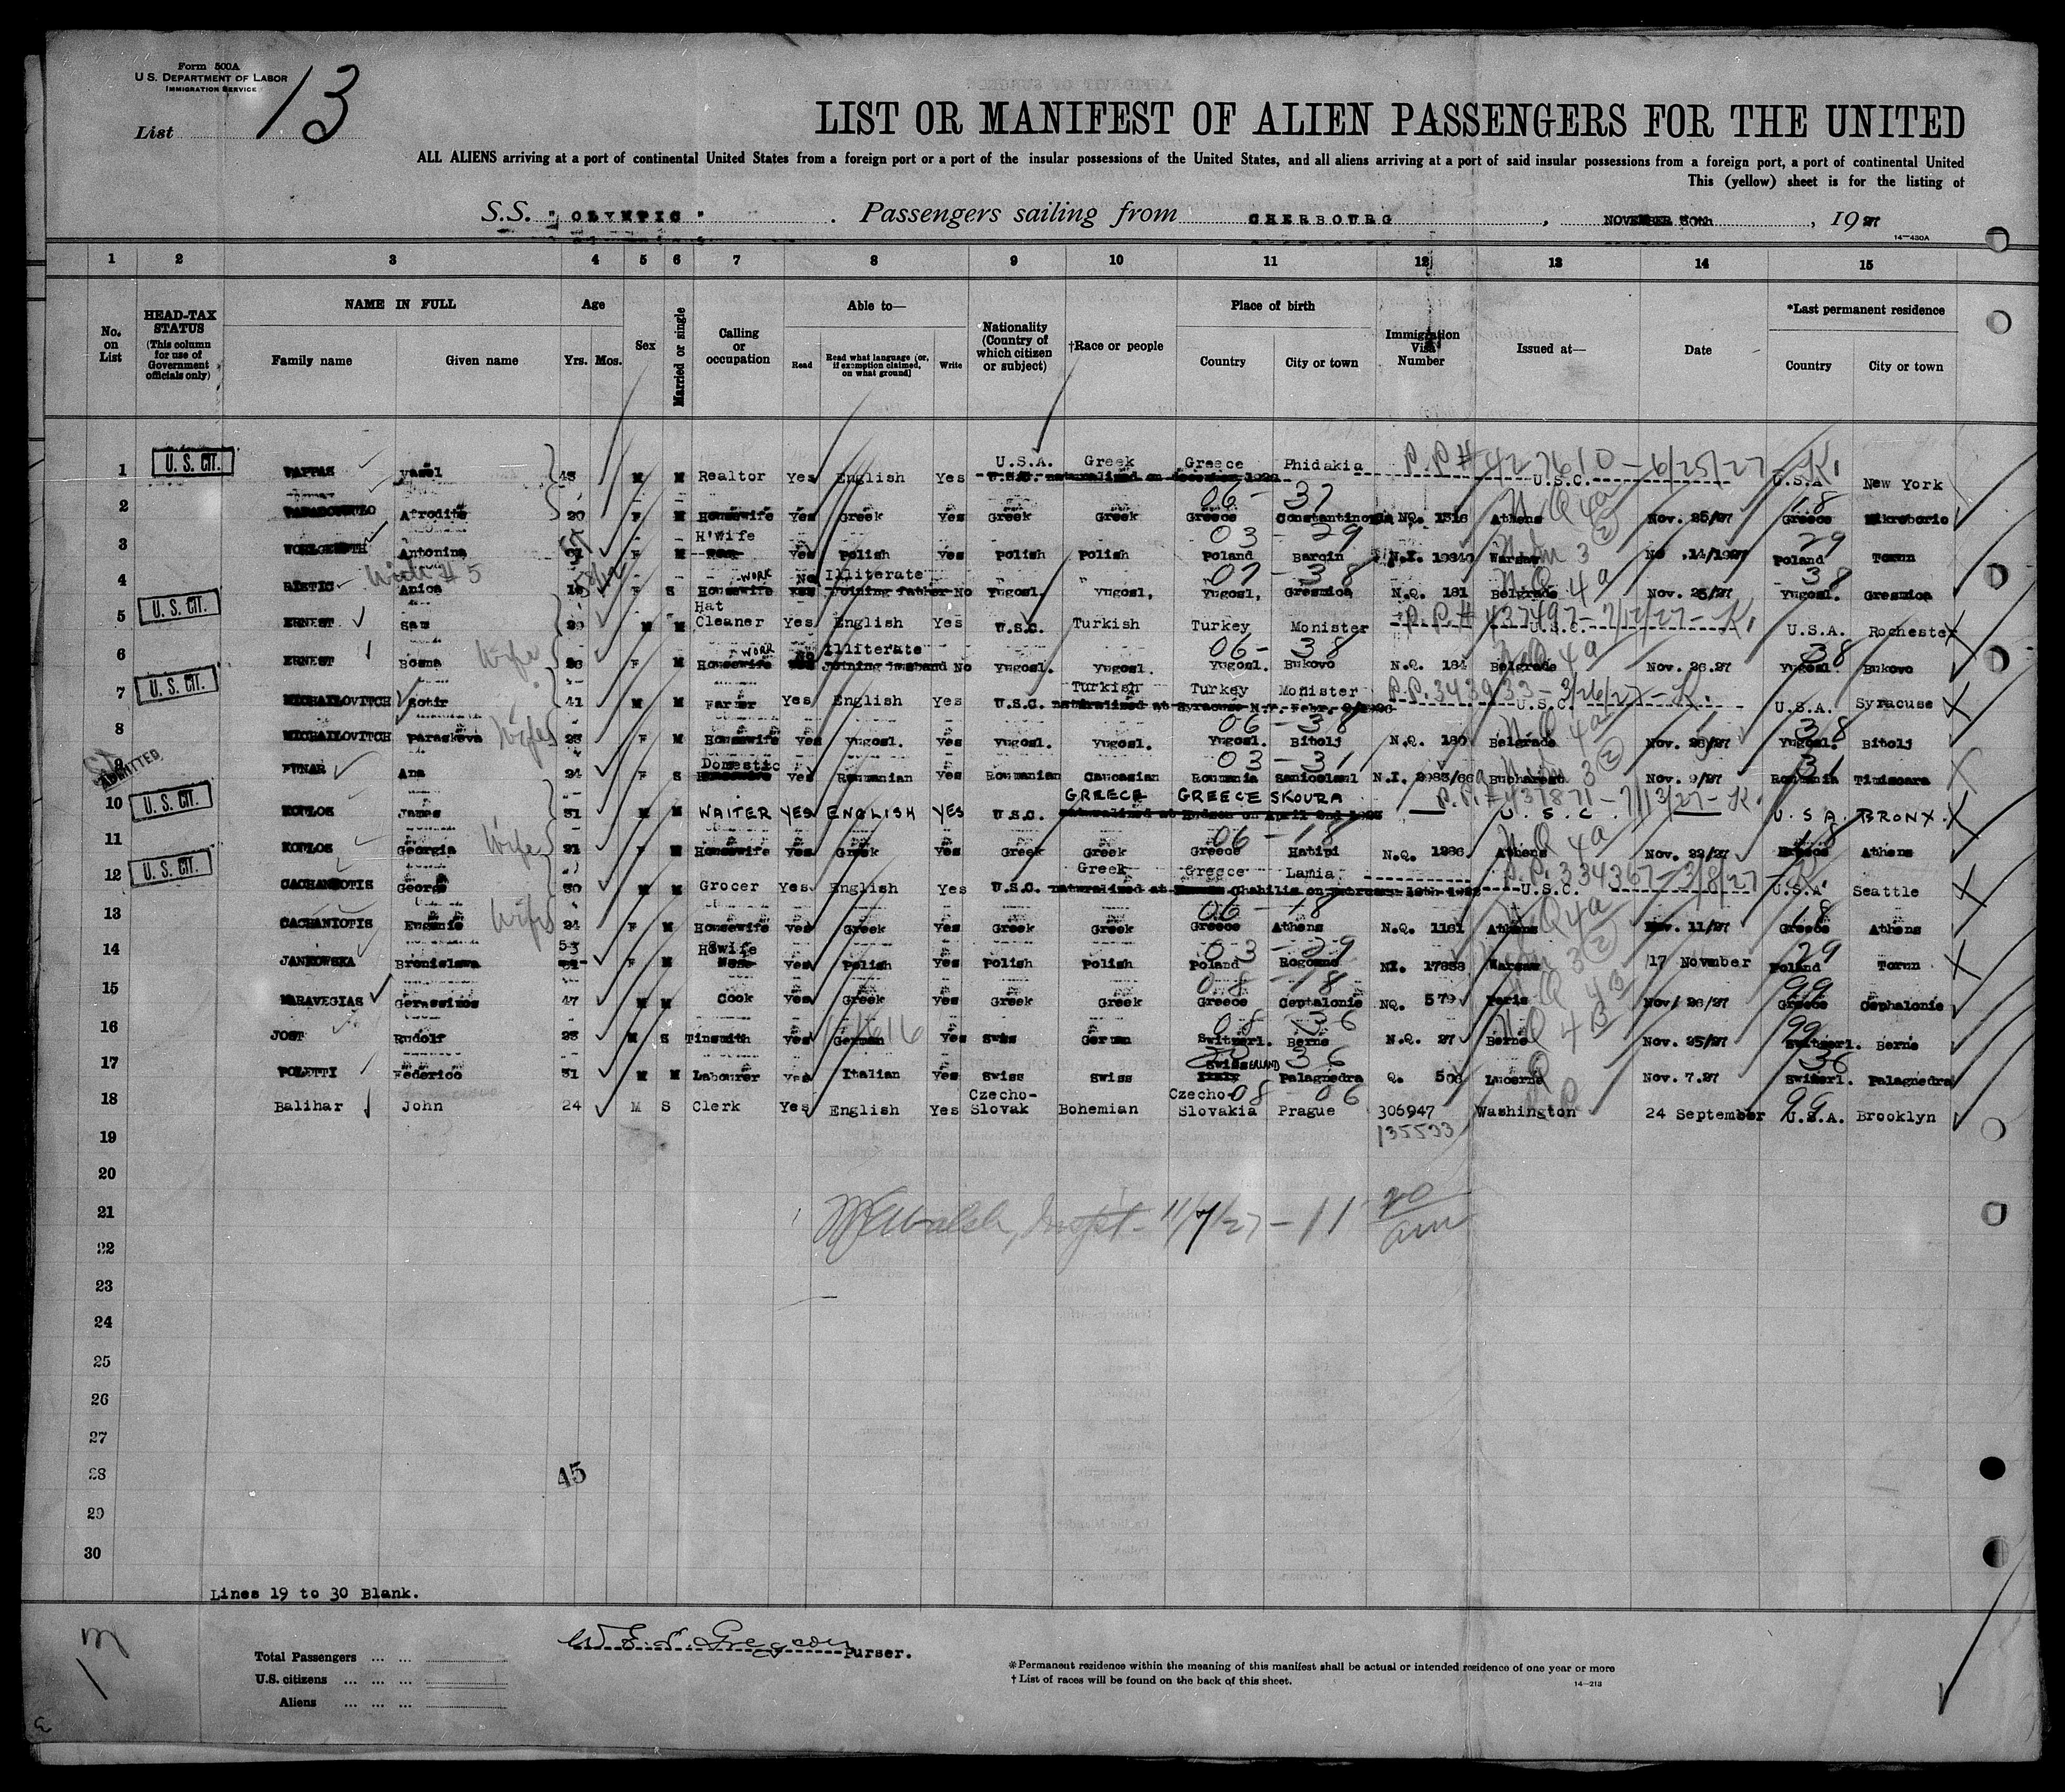 Form 500A
U.S. DEPARTMENT OF LABOR
IMMIGRATION SERVICE
List 13
LIST OR MANIFEST OF ALIEN PASSENGERS FOR THE UNITED
ALL ALIENS arriving at a port of continental United States from a foreign port or a port of the insular possessions of the United States, and all aliens arriving at a port of said insular possessions from a foreign port, a port of continental United
This (yellow) sheet is for the listing of
S.S. "OLYMPIC". Passengers sailing from CHERBOURG, NOVEMBER 30th, 1927
14—430A
1 2 3 4 5 6 7 8 9 10 11 12 13 14 15
No. on List
HEAD-TAX STATUS (This column for use of Government officials only)
NAME IN FULL Family name Given name
Age Yrs. Mos.
Sex
Married or single
Calling or occupation
Able to— Read Read what language (or, if exemption claimed, on what ground) Write
Nationality (Country of which citizen or subject)
†Race or people
Place of birth Country City or town
Immigration Visa Number
Issued at—
Date
*Last permanent residence Country City or town
1 U. S. CIT. PAPPAS Vasel 43 M M Realtor Yes English Yes U.S.A. Greek Greece Phidakia P.P.# 427610 - 6/25/27 - K. U.S.C. U.S.A New York
U.S.C. naturalized on december
06 - 37 NQ 4a 18
2 Afrodite 20 F M Housewife Yes Greek Yes Greek Greek Greece Constantinople NQ. 1316 Athens Nov. 25/27 Greece
H'wife 03 - 29 3 (2) 29
3 WOHLGEMUTH Antonina F M Yes Polish Yes Polish Polish Poland Barcin N.I. 19840 Warsaw No .14/1927 Poland Torun
With #5 WORK No Illiterate 07 - 38 NQ 4a 38
4 RISTIC Anica F S Housewife Yes Joining father No Yugosl. Yugosl. Yugosl. Gresnica N.Q. 181 Belgrade Nov. 25/27 Yugosl. Gresnica
5 U. S. CIT. ERNEST Sam M M Hat Cleaner Yes English Yes U.S.C. Turkish Turkey Monister P.P.# 437497 - 7/12/27 - K. U.S.C. U.S.A. Rochester
Wife WORK No Illiterate 06 - 38 NQ 4a 38
6 ERNEST Bosna 26 F M Housewife Yes Joining husband No Yugosl. Yugosl. Yugosl. Bukovo N.Q. 184 Belgrade Nov. 26.27 Yugosl. Bukovo
7 U. S. CIT. MICHAILOVITCH Sotir 41 M M Farmer Yes English Yes U.S.C. Turkish Turkey Monister P.P. 343933 - 3/26/27 - K. U.S.C. U.S.A. Syracuse
naturalized at Syracuse N.Y. Febr.
Wife 06 - 38 NQ 4a 38
8 MICHAILOVITCH Paraskeva F M Housewife Yes Yugosl. Yes Yugosl. Yugosl. Yugosl. Bitolj N.Q. 180 Belgrade Nov. 26/27 Yugosl. Bitolj
ADMITTED Domestic 03 - 31 3 (2) 31
9 FUNAR Ana 24 F S Housewife Yes Roumanian Yes Roumanian Caucasian Roumania N.I. 2983/66 Bucharest Nov. 9/27 Roumania Timisoara
10 U. S. CIT. KOPLOS James 31 M M WAITER YES ENGLISH YES U.S.C. GREECE GREECE SKOURA P.P.# 437871 - 7/13/27 - K. U. S. C. U. S A. BRONX.
naturalized at Hudson on April 2nd
Wife 06 - 18 NQ 4a 18
11 KOPLOS Georgia 21 F M Housewife Yes Greek Yes Greek Greek Greece Hatipi N.Q. 1286 Athens Nov. 22/27 Greece Athens
12 U. S. CIT. CACHANIOTIS George 30 M M Grocer Yes English Yes U.S.C. Greek Greece Lamia P.P. 334367 - 3/8/27 - K. U.S.C. U.S.A. Seattle
naturalized at Chahilis on February
Wife 06 - 18 NQ 4a 18
13 CACHANIOTIS Eugenie 24 F M Housewife Yes Greek Yes Greek Greek Greece Athens N.Q. 1161 Athens Nov. 11/27 Greece Athens
53 H8wife 03 - 29 3 (2) 29
14 JANKOWSKA Bronislawa F M Yes Polish Yes Polish Polish Poland Rogozno NI. 17838 Warsaw 17 Novmber Poland Torun
08 - 18 99
15 MARAVEGIAS Gerassimos 47 M M Cook Yes Greek Yes Greek Greek Greece Cephalonie NQ. 579 Paris Nov. 26/27 Greece Cephalonie
08 36 NQ 4B 99
16 JOST Rudolf 23 M S Tinsmith Yes German Yes Swiss German Switzerl. Berne N.Q. 27 Berne Nov. 25/27 Switzerl. Berne
36 36
17 POLETTI Federico 31 M M Labourer Yes Italian Yes Swiss Swiss SwissERLAND Italy Palagnedra Q. 506 Lucerne Nov. 7.27 Switzerl. Palagnedra
08 06 99
18 Balihar John 24 M S Clerk Yes English Yes Czecho-Slovak Bohemian Czecho-Slovakia Prague 306947 Washington 24 September U.S.A. Brooklyn
135533
19
20
21 Walsh, Inspt - 11/7/27 - 11 20 am
22
23
24
25
26
27
28 45
29
30
Lines 19 to 30 Blank.
Purser.
Total Passengers ... ...
U.S. citizens ... ... ...
Aliens ... ... ...
*Permanent residence within the meaning of this manifest shall be actual or intended residence of one year or more
†List of races will be found on the back of this sheet.
14—213